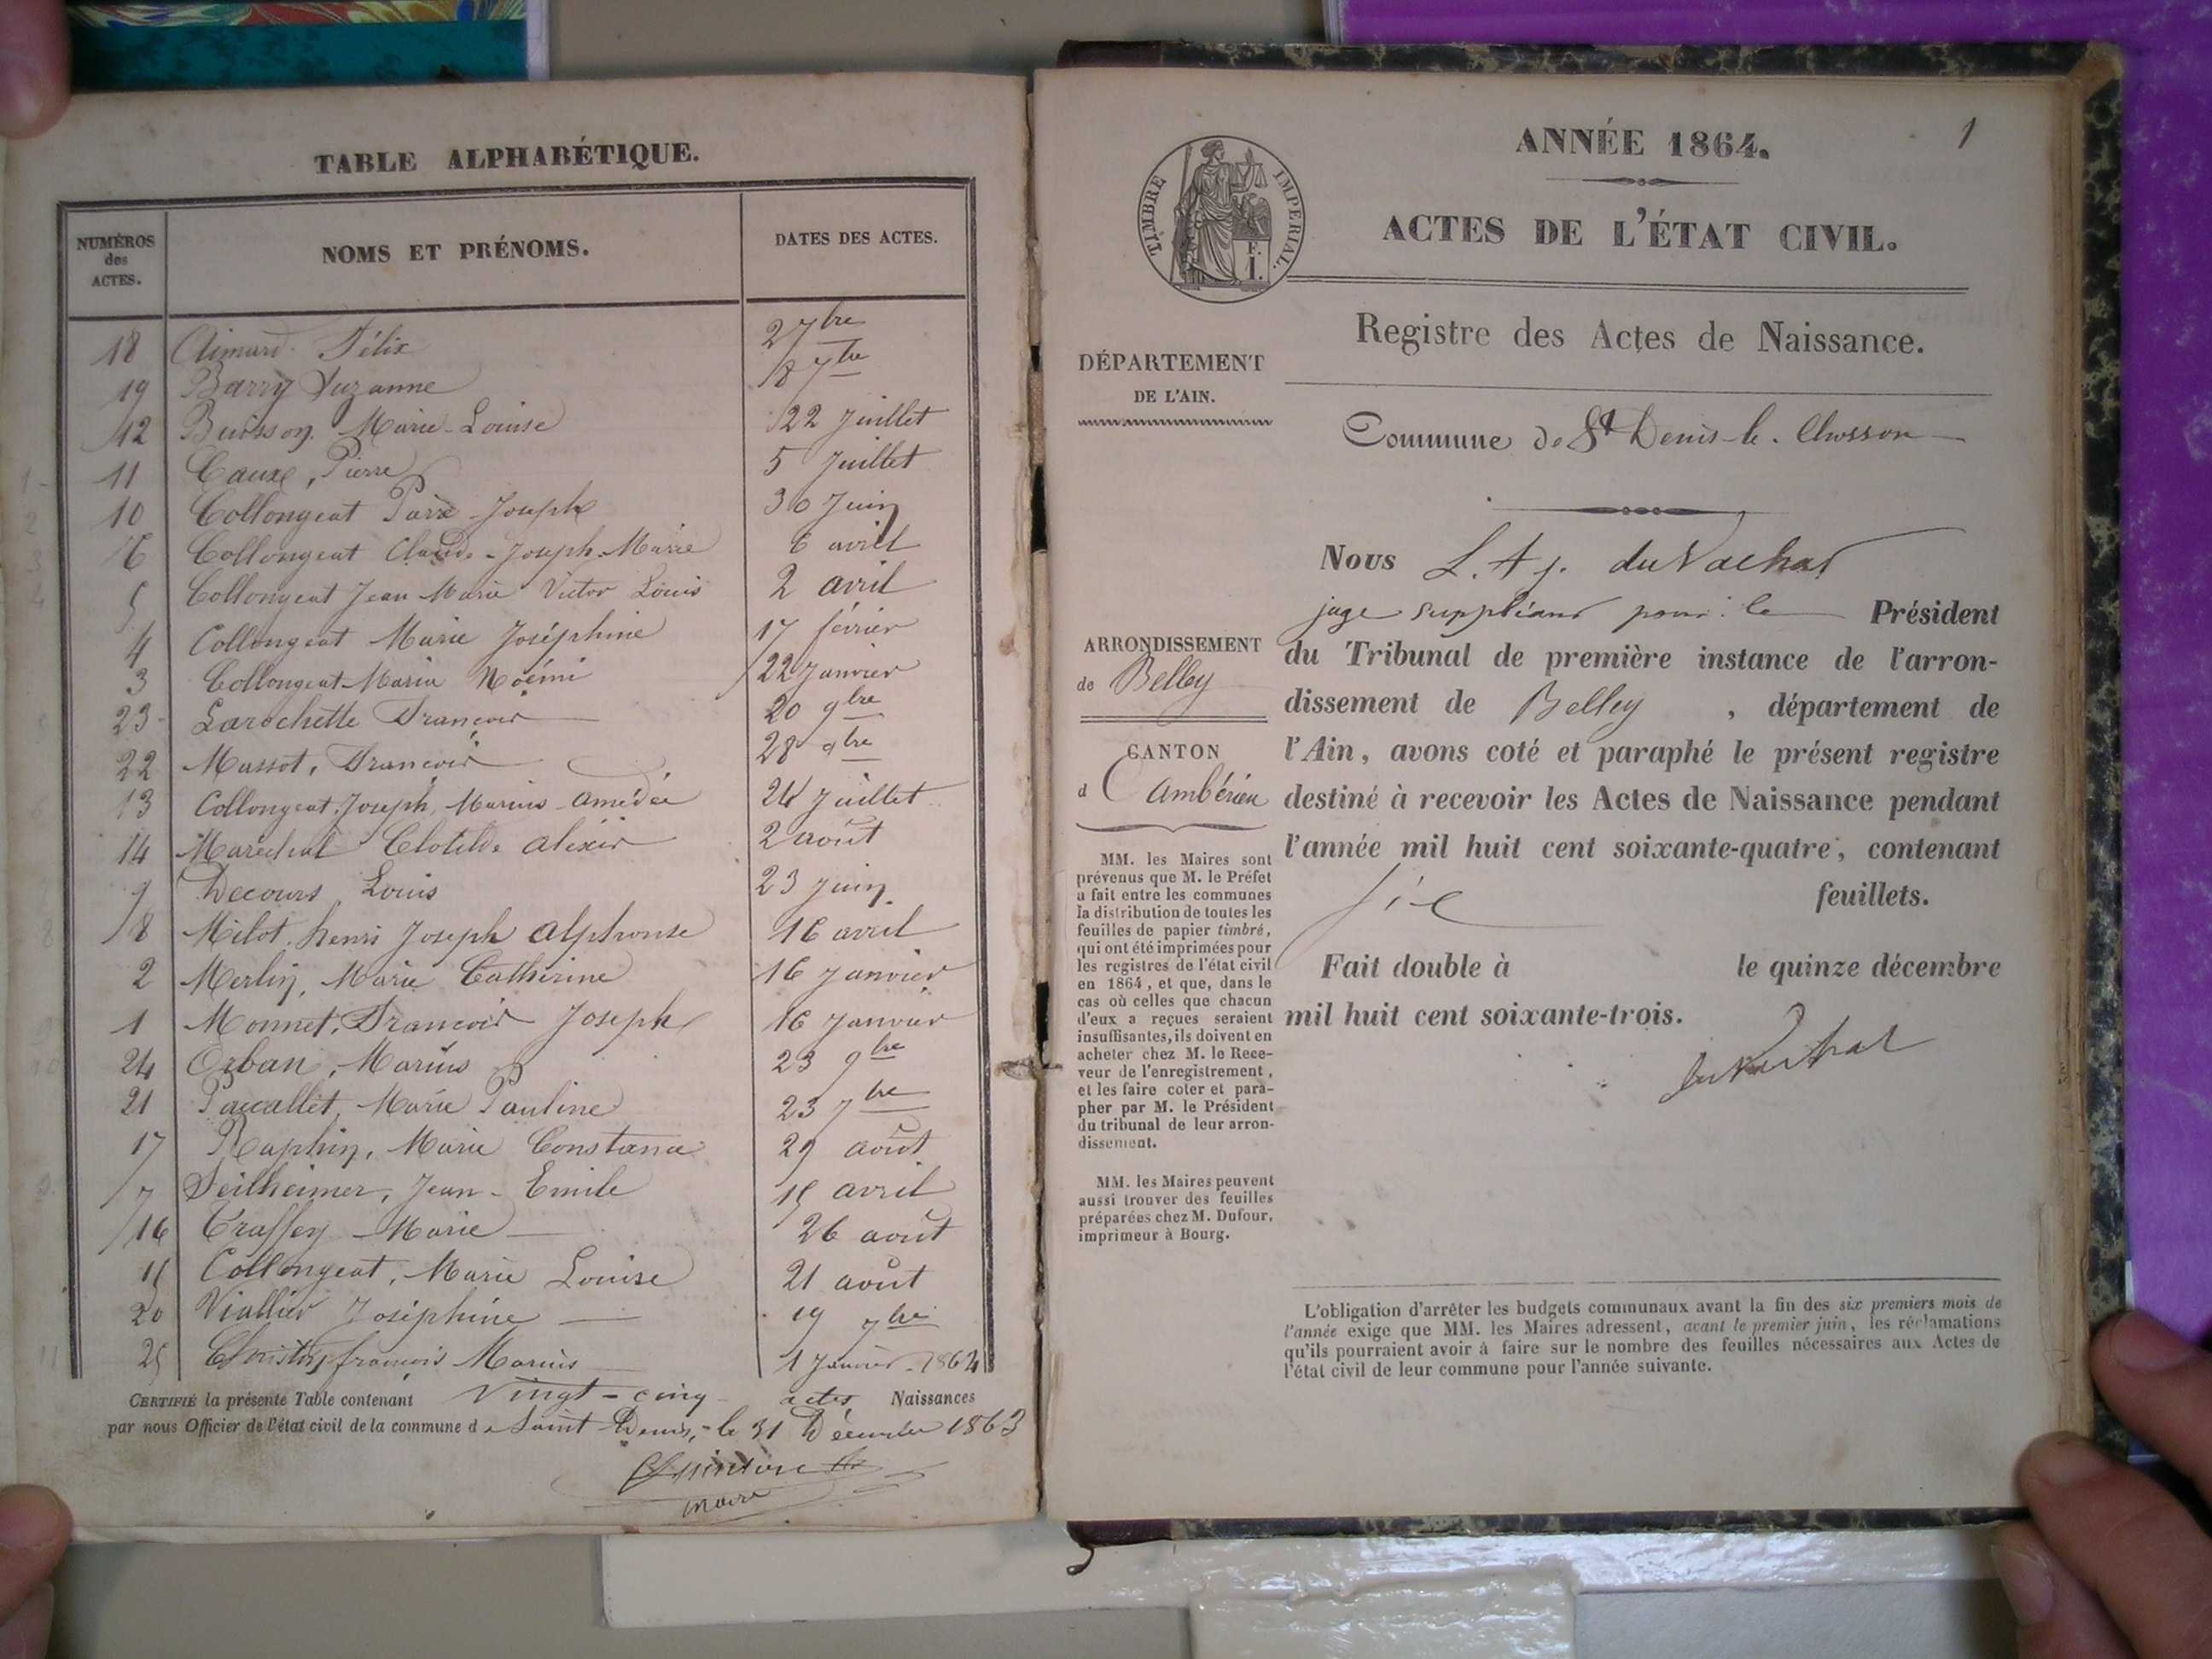 TABLE ALPHABÉTIQUE.
NUMÉROS des ACTES. NOMS ET PRÉNOMS. DATES DES ACTES.
18 Aimard Félix 2 7bre
19 Barry Suzanne 8 7bre
12 Buisson Marie-Louise 22 juillet
11 Caux, Pierre 5 juillet
10 Collongeat Joseph 30 juin
6 Collongeat Claude-Joseph-Marie 6 avril
5 Collongeat Jean Marie Victor Louis 2 avril
4 Collongeat Marie Joséphine 17 février
3 Collongeat Maria Noémi 22 janvier
23 Larochette François 20 9bre
22 Massot, François 28 9bre
13 Collongeat, Joseph, Marius Amédée 24 juillet
14 Maréchal Clotilde Alexis 2 août
9 Decours Louis 23 juin
8 Milot, henri Joseph Alphonse 16 avril
2 Merlin, Marie Catherine 16 janvier
1 Monnet, François Joseph 16 janvier
24 Orban, Marius 23 9bre
21 Paccallet, Marie Pauline 23 7bre
17 Raphin, Marie Constance 29 août
7 Seilheimer, Jean-Emile 15 avril
16 Traffey Marie 26 août
15 Collongeat, Marie Louise 21 août
20 Viallier Joséphine 19 7bre
25 françois Marius 1 janvier 1864
CERTIFIÉ la présente Table contenant Vingt-cinq actes Naissances
par nous Officier de l'état civil de la commune de Saint Denis, le 31 Décembre 1863
maire
1
ANNÉE 1864.
TIMBRE IMPÉRIAL.
E. I.
ACTES DE L'ÉTAT CIVIL.
Registre des Actes de Naissance.
DÉPARTEMENT
DE L'AIN.
Commune de St Denis-le-Chosson
Nous L. A. J. du Vachat
juge suppléant pour le Président
ARRONDISSEMENT
de Belley
du Tribunal de première instance de l'arron-
dissement de Belley, département de
l'Ain, avons coté et paraphé le présent registre
CANTON
d'Ambérieu
destiné à recevoir les Actes de Naissance pendant
l'année mil huit cent soixante-quatre, contenant
six feuillets.
Fait double à le quinze décembre
mil huit cent soixante-trois.
du Vachat
MM. les Maires sont
prévenus que M. le Préfet
a fait entre les communes
la distribution de toutes les
feuilles de papier timbré,
qui ont été imprimées pour
les registres de l'état civil
en 1864, et que, dans le
cas où celles que chacun
d'eux a reçues seraient
insuffisantes, ils doivent en
acheter chez M. le Rece-
veur de l'enregistrement,
et les faire coter et para-
pher par M. le Président
du tribunal de leur arron-
dissement.
MM. les Maires peuvent
aussi trouver des feuilles
préparées chez M. Dufour,
imprimeur à Bourg.
L'obligation d'arrêter les budgets communaux avant la fin des six premiers mois de
l'année exige que MM. les Maires adressent, avant le premier juin, les réclamations
qu'ils pourraient avoir à faire sur le nombre des feuilles nécessaires aux Actes de
l'état civil de leur commune pour l'année suivante.